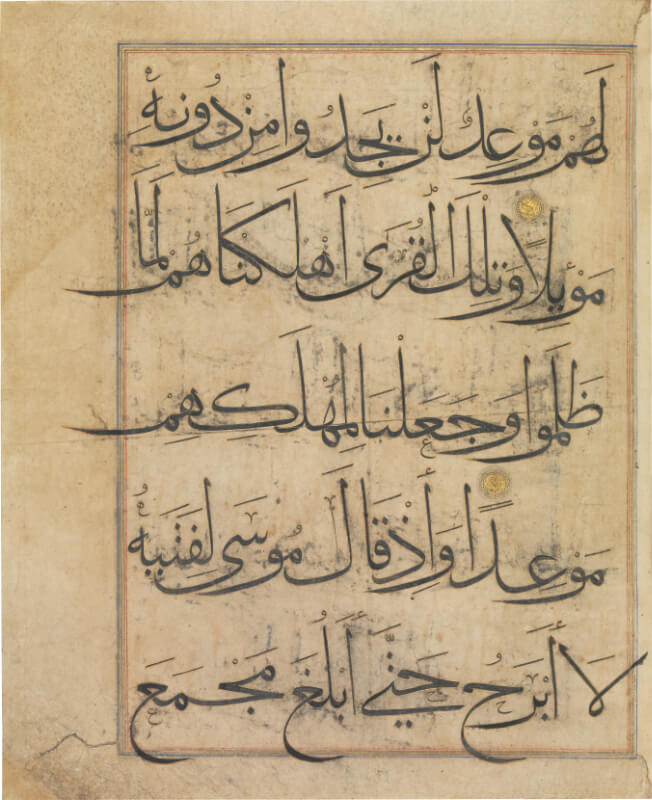 لَهُمْ مَوْعِدٌ لَنْ يَجِدُوا مِنْ دُونِهِ
مَوْئِلًا وَتِلْكَ الْقُرَى أَهْلَكْنَاهُمْ لَمَّا
ظَلَمُوا وَجَعَلْنَا لِمَهْلِكِهِمْ
مَوْعِدًا وَإِذْ قَالَ مُوسَى لِفَتَىٰهُ
لَا أَبْرَحُ حَتَّى أَبْلُغَ مَجْمَعَ